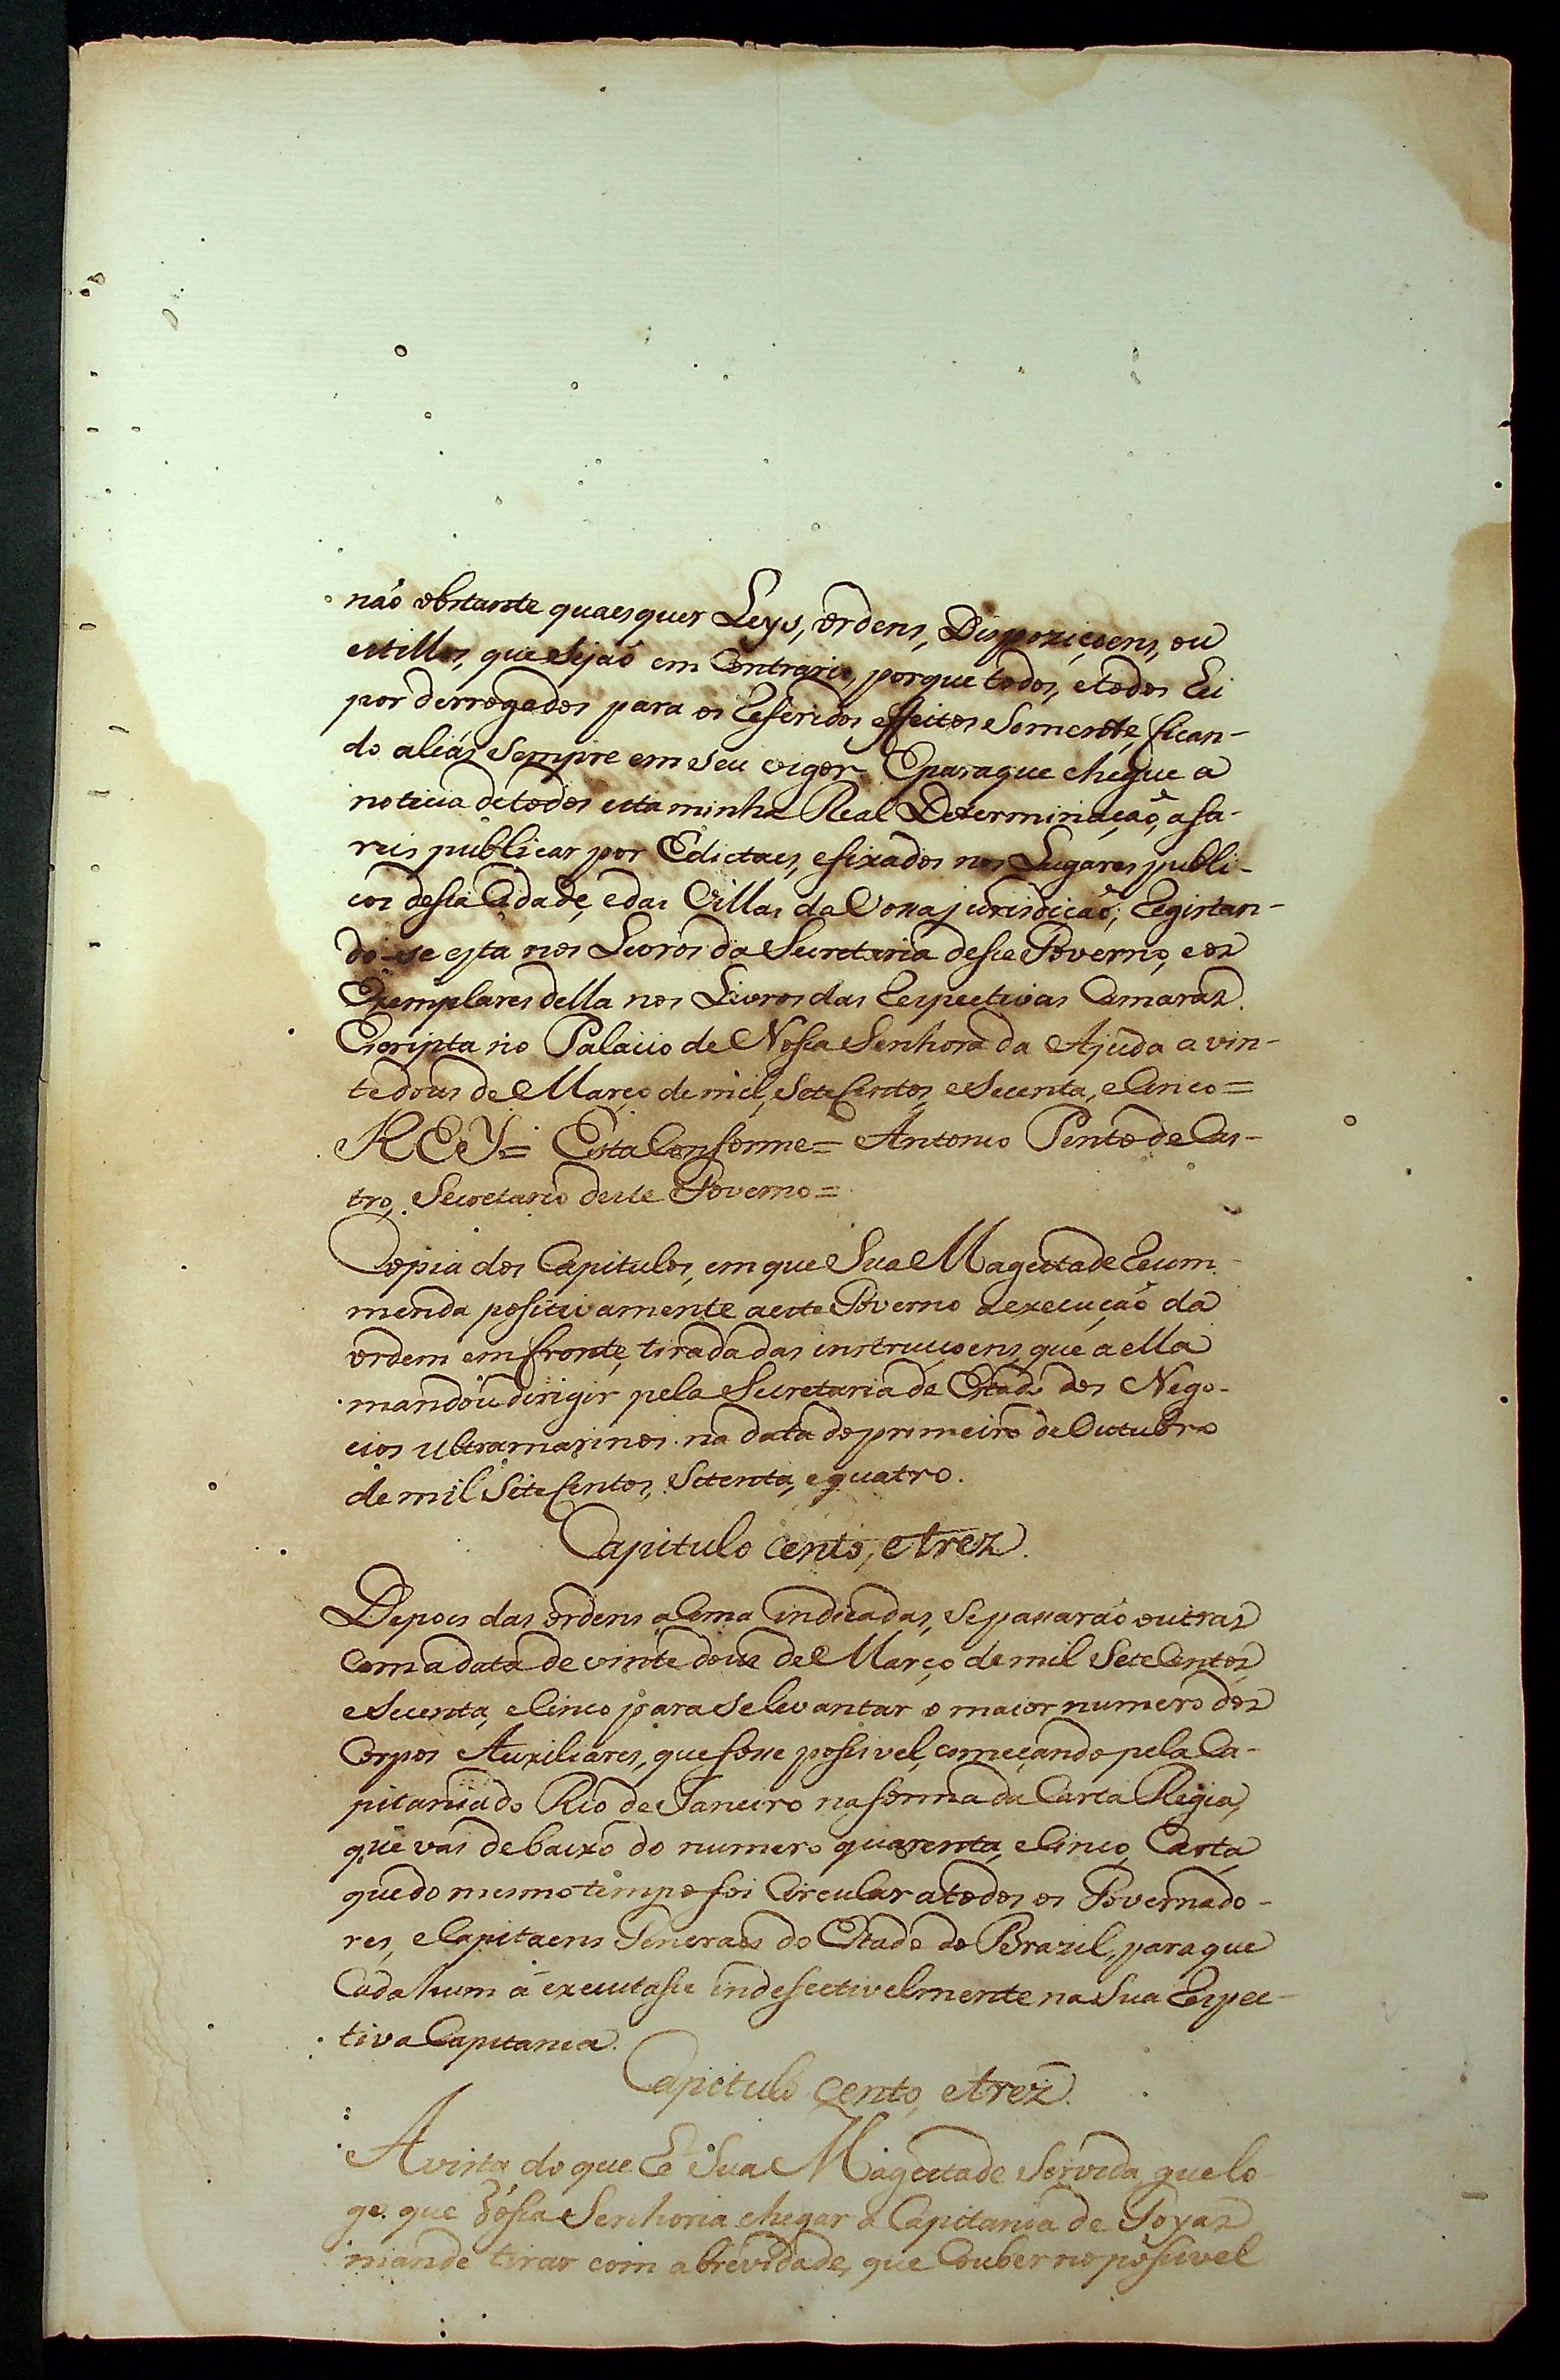 não obstante quaesquer Leys, ordens, Dispoziçoens, ou
estillos, que sejaõ em Contrario, porque todos, e todos Ei
por derrogados para os Referidos effeitos Somente, fican-
do aliás Sempre em seu vigor. E para que chegue a
noticia de todos esta minha Real Determinaçaõ, a fa-
reis publicar por Edictaes, e fixados nos Lugares publi-
cos desta Cidade, e das Villas da Vossa jurisdicaõ; Registan-
do-se esta nos Livros da Secretaria deste Governo, e os
Exemplares della nos Livros das Respectivas Camaras.
Escripta no Palacio de Nossa Senhora da Ajuda a vin-
te dous de Março de mil, Sete Centos, e Secenta, e Cinco =
REY = Está Conforme = Antonio Pinto de Cas-
tro, Secretario deste Governo =
Copia dos Capitulos, em que Sua Magestade Recom-
menda positivamente a este Governo a execuçaõ da
ordem em fronte, tirada das instrucçoens, que a ella
mandou dirigir pela Secretaria de Estado dos Nego-
cios Ultramarinos na data do primeiro de Outubro
de mil Sete Centos, Setenta, e quatro.
Capitulo cento, e trez.
Depois das ordens aSima indicadas, Se passaraõ outras
Com a data de vinte dous de Março de mil Sete Centos,
e Secenta, e Cinco para Se levantar o maior numero dos
Corpos Auxiliares, que fosse possivel, começando pela Ca-
pitania do Rio de Janeiro na forma da Carta Regia,
que vai debaixo do numero quarenta, e Cinco, Carta,
que do mesmo tempo foi Circular a todos os Governado-
res, e Capitaens Generaes do Estado do Brazil, para que
Cada hum a executasse indefectivelmente na Sua Respec-
tiva Capitania.
Capitulo cento, e trez.
A vista do que Hé Sua Magestade Servida, que lo-
go que Vossa Senhoria chegar á Capitania de Goyaz
mande tirar com a brevidade, que Couber no possivel